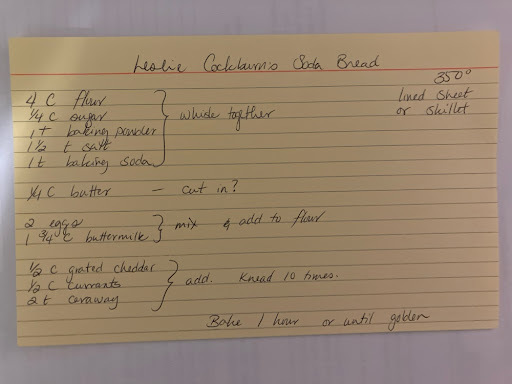 Leslie Cockburn's Soda Bread
350°
lined sheet
or skillet
4 C flour
1/4 C sugar
1 t baking powder
1 1/2 t salt
1 t baking soda
whisk together
1/4 C butter — cut in?
2 eggs
1 3/4 C buttermilk
mix & add to flour
1/2 C grated cheddar
1/2 C currants
2 t caraway
add. Knead 10 times.
Bake 1 hour or until golden